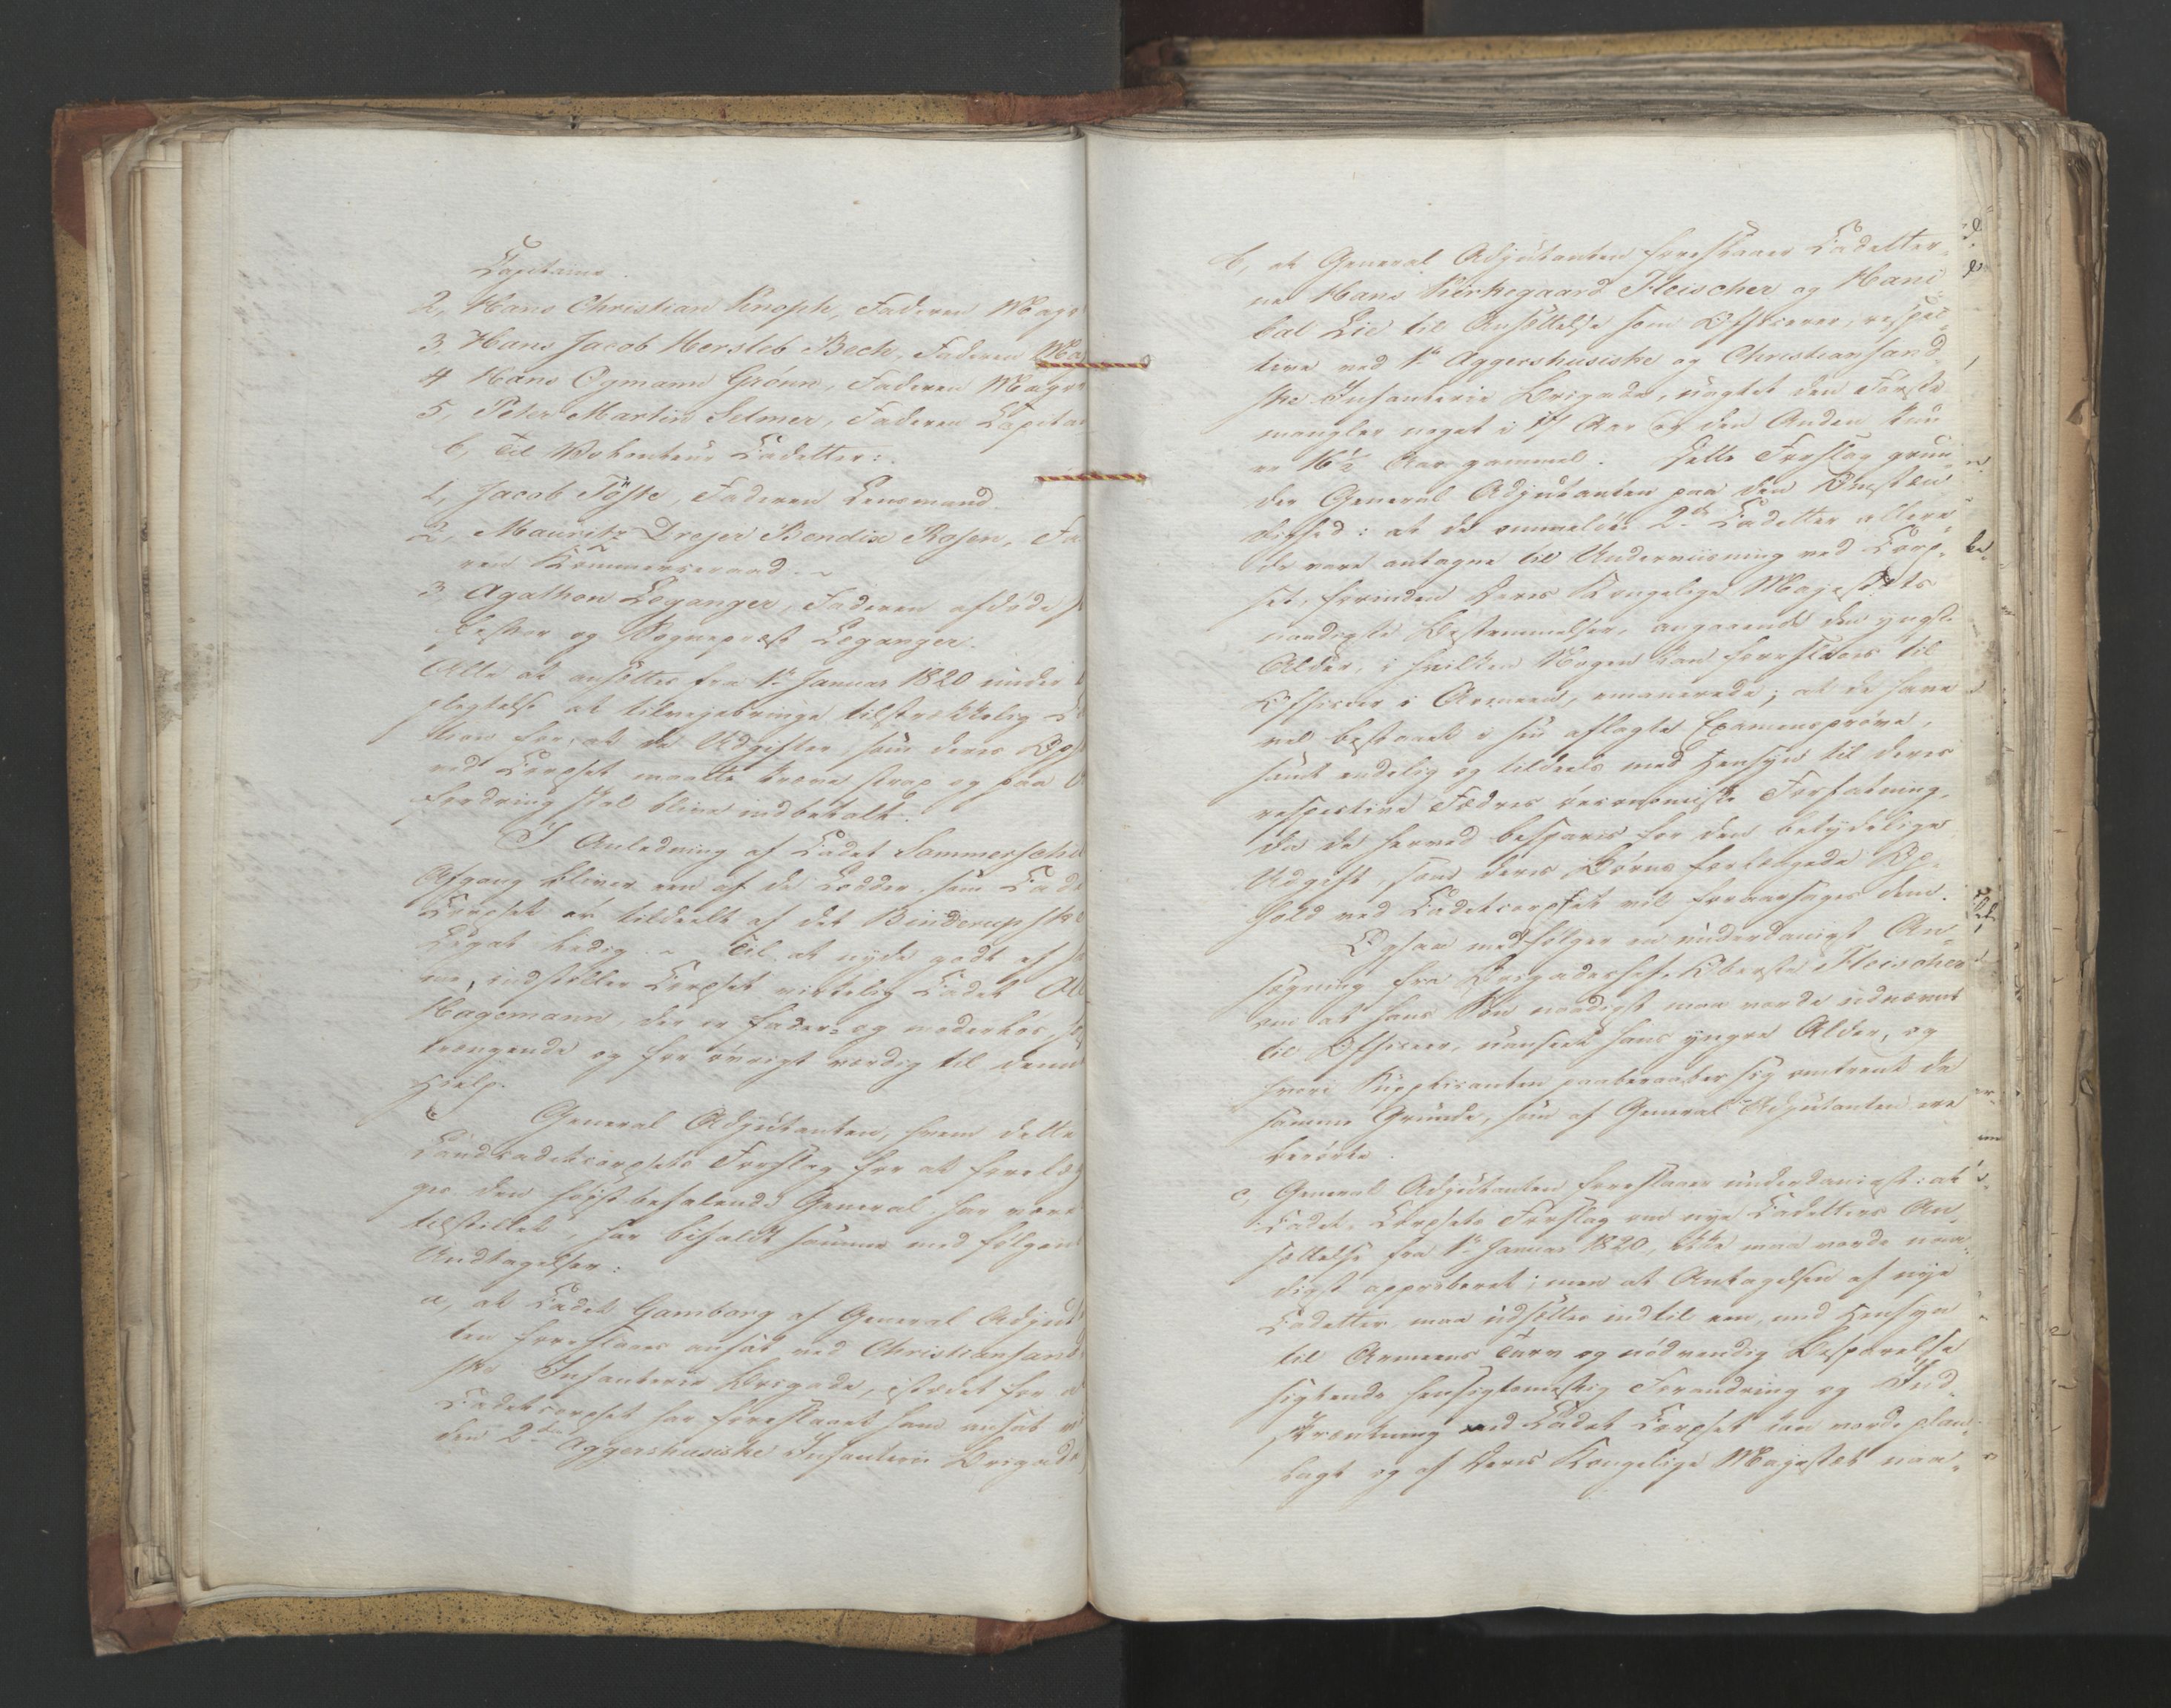 Capitaine.
2, Hans Christian Knoph, Faderen Major
3, Hans Jacob Hersleb Bech, Faderen Ma
4 Hans Ogmann Grönn, Faderen Major
5, Peter Martin Selmer, Faderen Capita
b, Til Volonteur Cadetter:
1, Jacob Töste, Faderen Lensmand.
2, Mauritz Dreyer Bendix Rosen, Fa
ren Kammerraad. –
3, Agathon Leganger, Faderen afdöde
og Sogneprest Leganger.
Alle at ansættes fra 1ste Januar 1820 under
pligtelse at tilvejebringe tilstrækkelig
tion for, at de Udgifter, som deres Op
ved Corpset maatte kræve strax og paa
fordring skal blive indbetalt.
I Anledning af Cadet Sommerschil
Afgang bliver een af de Lodder, som Cadet
Corpset er tildeelt af det Binderupske
Legat ledig. – Til at nyde godt af
me, indstiller Corpset virkelig Cadet
Hagemann, der er fader- og moderlös,
trængende og for övrigt værdig til denne
Hielp.
General Adjutanten, hvem dette
Landcadetcorpsets Forslag for at forelæg
ges den höistbefalende General har været
tilstillet, har bifaldt samme med fölgende
Undtagelser:
a, at Cadet Gamborg af General Adjut
ten foreslaaes ansat ved Christiansand
ske Infanterie Brigade, istedet for at
Cadetcorpset har foreslaaet ham ansat v
den 2den Aggershusiske Infanterie Brigade
b, at General Adjutanten foreslaaer Cadetter-
ne Hans Kirkegaard Fleischer og Hani-
bal Lie til Ansættelse som Officerer, respec-
tive ved 1ste Aggershusiske og Christiansand-
ske Infanterie Brigade, uagtet den Förste
mangler noget i 17 Aar og den Anden kun
er 16½ Aar gammel. Dette Forslag grun-
der General Adjutanten paa den Omstæn-
dighed: at de ommeldte 2de Cadetter allere-
de vare antagne til Underviisning ved Corp-
set, förinden Deres Kongelige Majestæts
naadigste Bestemmelser, angaaende den yngste
Alder, i hvilken Nogen kan foreslaaes til
Officeer i Armeen, emanerede; at de have
vel bestaaet i sin aflagte Examenspröve,
samt endelig og tildeels med Hensyn til deres
respective Fædres oeconomiske Forfatning,
da de herved bespares for den betydelige
Udgift, som deres Börns forlængede Op-
hold ved Cadetcorpset vil foraarsage dem.
Ogsaa medfölger en underdanigst An-
sögning fra Brigadechef Oberste Fleischer
om at hans Sön naadigst maa vorde udnævnt
til Officeer, uanseet hans yngre Alder, og
hvori Supplicanten paaberaaber sig omtrent de
samme Grunde, som af General Adjutanten ere
berörte.
c, General Adjutanten foreslaaer underdanigst: at
Cadet-Corpsets Forslag om nye Cadetters An-
sættelse fra 1ste Januar 1820, ikke maa vorde naa-
digst approberet; men at Antagelsen af nye
Cadetter maa udsættes indtil een, med Hensyn
til Armeens Tarv og nödvendig Besparelse
sigtende hensigtsmæssig Forandring og Ind-
skrænkning ved Cadet Corpset kan vorde plan-
lagt og af Deres Kongelige Majestæt naa-